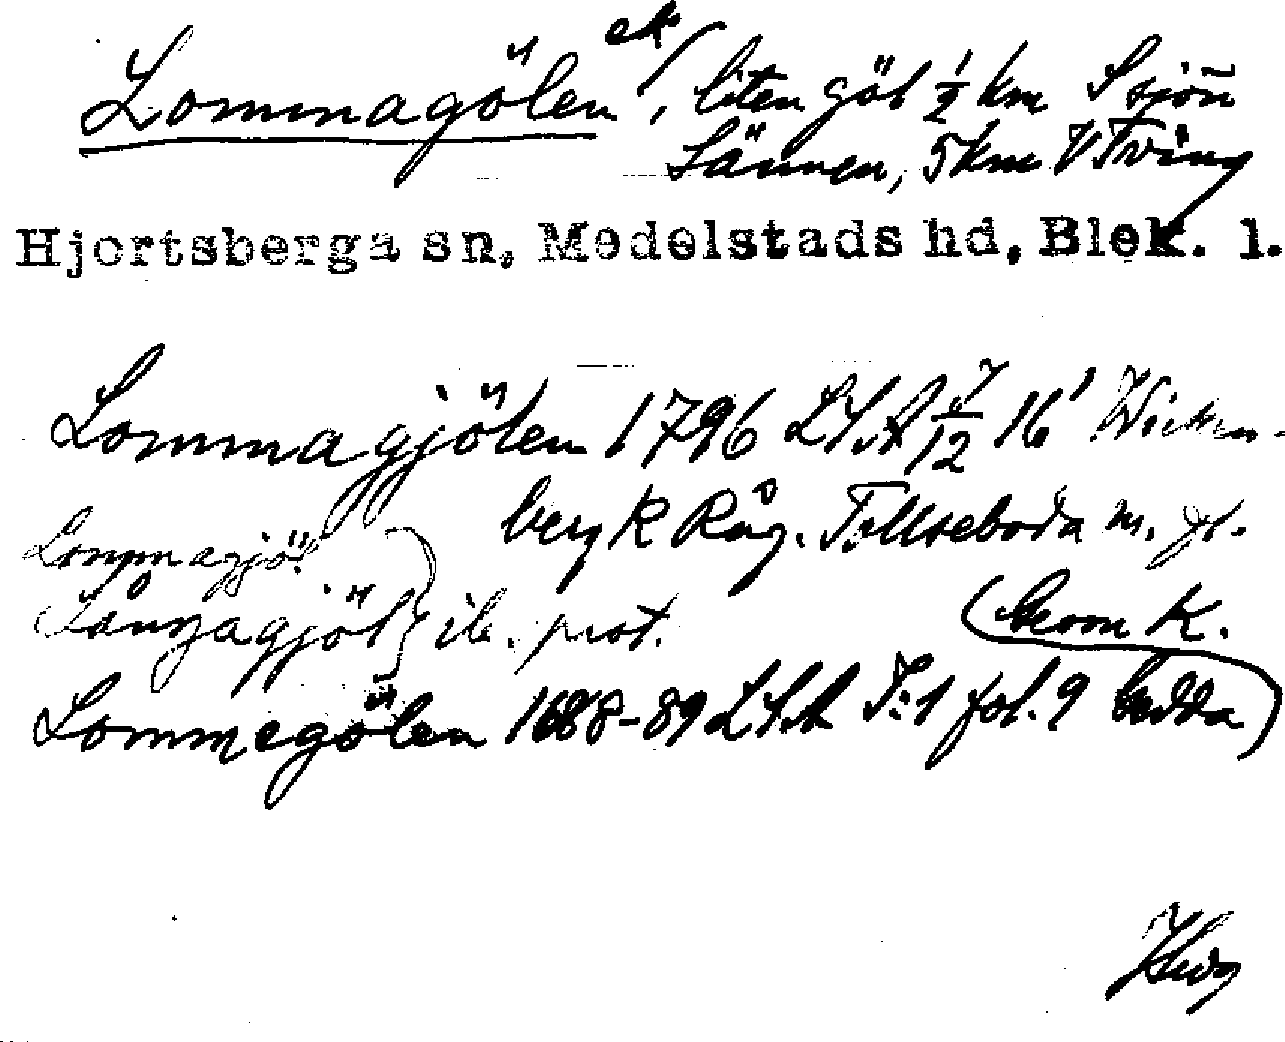 Lommagölen ek, liten göl ½ km S sjön
Sännen, 5 km V Tving
Hjortsberga sn, Medelstads hd, Blek. l.
Lommagjölen 1796 LSA J/12 16¹ Wicken-
berg K Råg. Tollseboda m. fl.
Lommagjöl
Långagjöl } ib. prot.
Lommegölen 1688-89 LSA I:1 fol. 9